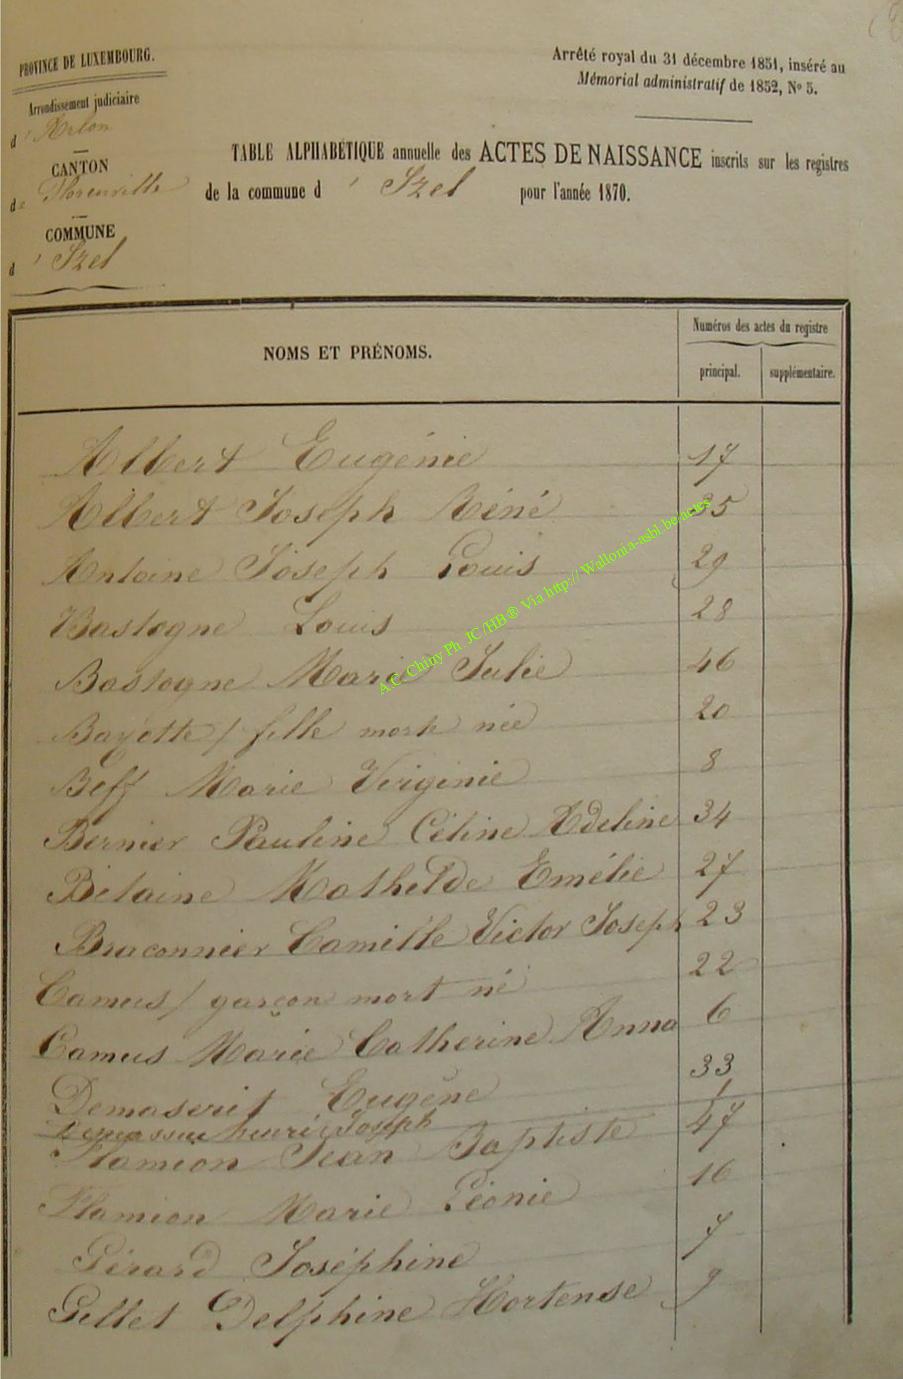 PROVINCE DE LUXEMBOURG.
Arrondissement judiciaire
d'Arlon
CANTON
de Florenville
COMMUNE
d'Izel
Arrêté royal du 31 décembre 1851, inséré au
Mémorial administratif de 1852, Nº 5.
TABLE ALPHABÉTIQUE annuelle des ACTES DE NAISSANCE inscrits sur les registres
de la commune d'Izel pour l'année 1870.
NOMS ET PRÉNOMS.
Numéros des actes du registre
principal. supplémentaire.
Albert Eugénie 17
Albert Joseph Réné 35
Antoine Joseph Louis 29
Bastogne Louis 28
Bastogne Marie Julie 46
Bayotte / fille morte née 20
Beff Marie Virginie 8
Bernier Pauline Céline Adeline 34
Bilaine Mathilde Emélie 27
Braconnier Camille Victor Joseph 23
Camus / garçon mort né 22
Camus Marie Catherine Anna 6
Eugène 33
henri Joseph 1
Flamion Jean Baptiste 47
Flamion Marie Léonie 16
Gérard Joséphine 7
Gillet Delphine Hortense 9
A.C. Chiny Ph. JC /HB ® Via http:// Wallonia-asbl.be-actes